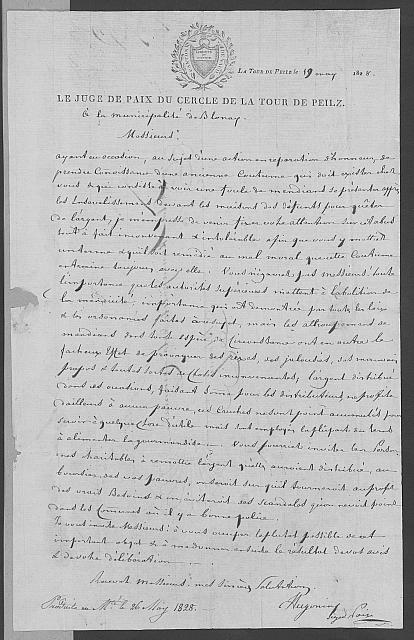 LA TOUR DE PEILZ le 19 may 1828.
LE JUGE DE PAIX DU CERCLE DE LA TOUR DE PEILZ.
à la municipalité de Blonay.
Messieurs
ayant eu occasion, au sujet d'une action en réparation d'honneur, de
prendre Connoissance d'une ancienne Coutume qui doit exister chez
vous & qui consiste à voir une foule de mendians se présenter après
les Ensevelissements devant les maisons des défunts pour quêter
de l'argent, je m'empresse de venir fixer votre attention sur cet abus
tout à fait inconvenant & intolérable afin que vous y mettiez
un terme & qu'il soit remédié au mal moral que cette Coutume
entraine toujours avec elle. Vous n'ignorez pas messieurs toute
l'importance que les autorités supérieures mettent à l'abolition de
la mendicité, importance qui est démontrée par toutes les loix
& les ordonnances faites à ce sujet, mais les attroupements de
mendians dans toute espèce de Circonstance ont en outre le
facheux Effet de provoquer des jalousies, des mauvais
propos & toutes sortes de Choses inconvenantes; l'argent distribué
dans ces occasions, faisant Somme pour les distributeurs, ne profite
d'ailleurs à aucun pauvre, ne sont point accumulés pour
servir à quelque Chose d'utile mais sont employés la plûpart du tems
à alimenter la gourmandise. Vous pourriez inviter les Person-
nes charitables à remettre l'argent qu'elles auroient distribué, au
boursier des vos pauvres, on seroit sur qu'il tourneroit au profit
des vrais Besoins & on éviteroit ces scandales qu'on ne voit point
dans les Communes où il y a bonne police.
Je vous invite Messieurs à vous occuper le plutot possible de cet
important objet & à me donner ensuite le résultat de vos avis
& de votre délibération
Recevez Messieurs mes sincères Salutations
Hugonin
Juge de Paix
Produite en Mté le 26 May 1828.